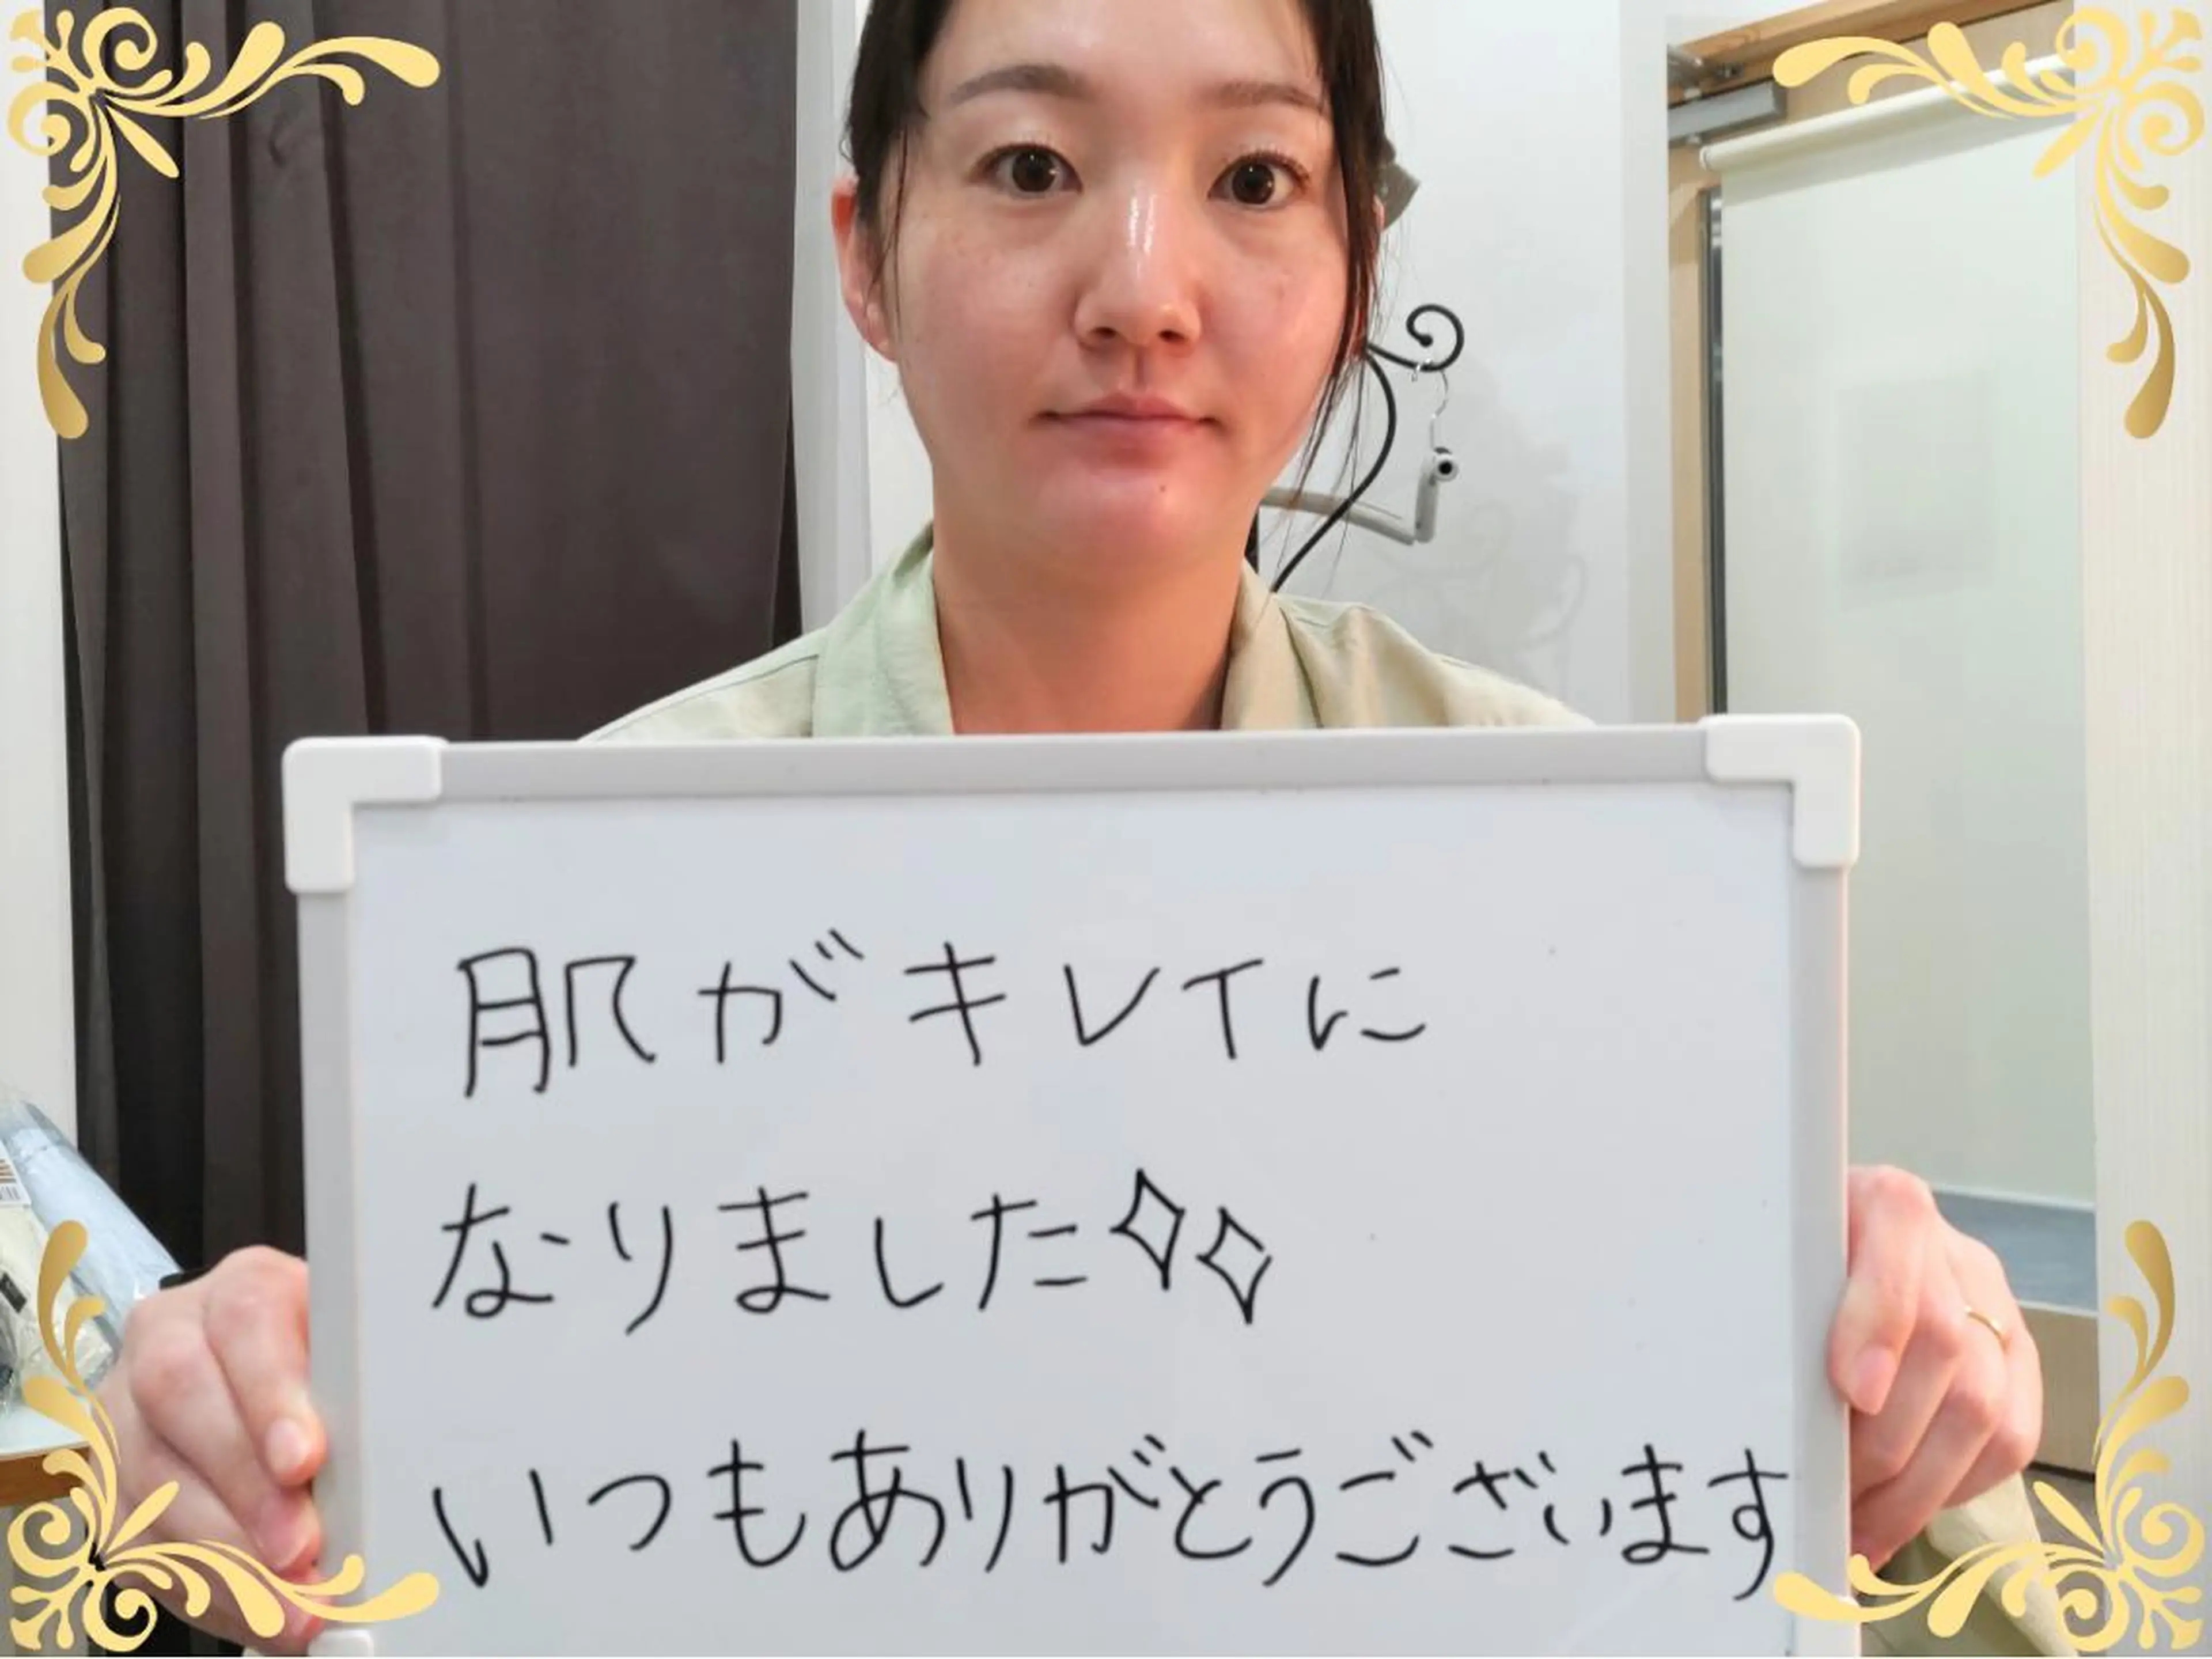 肌がキレイに
なりました✧✧
いつもありがとうございます